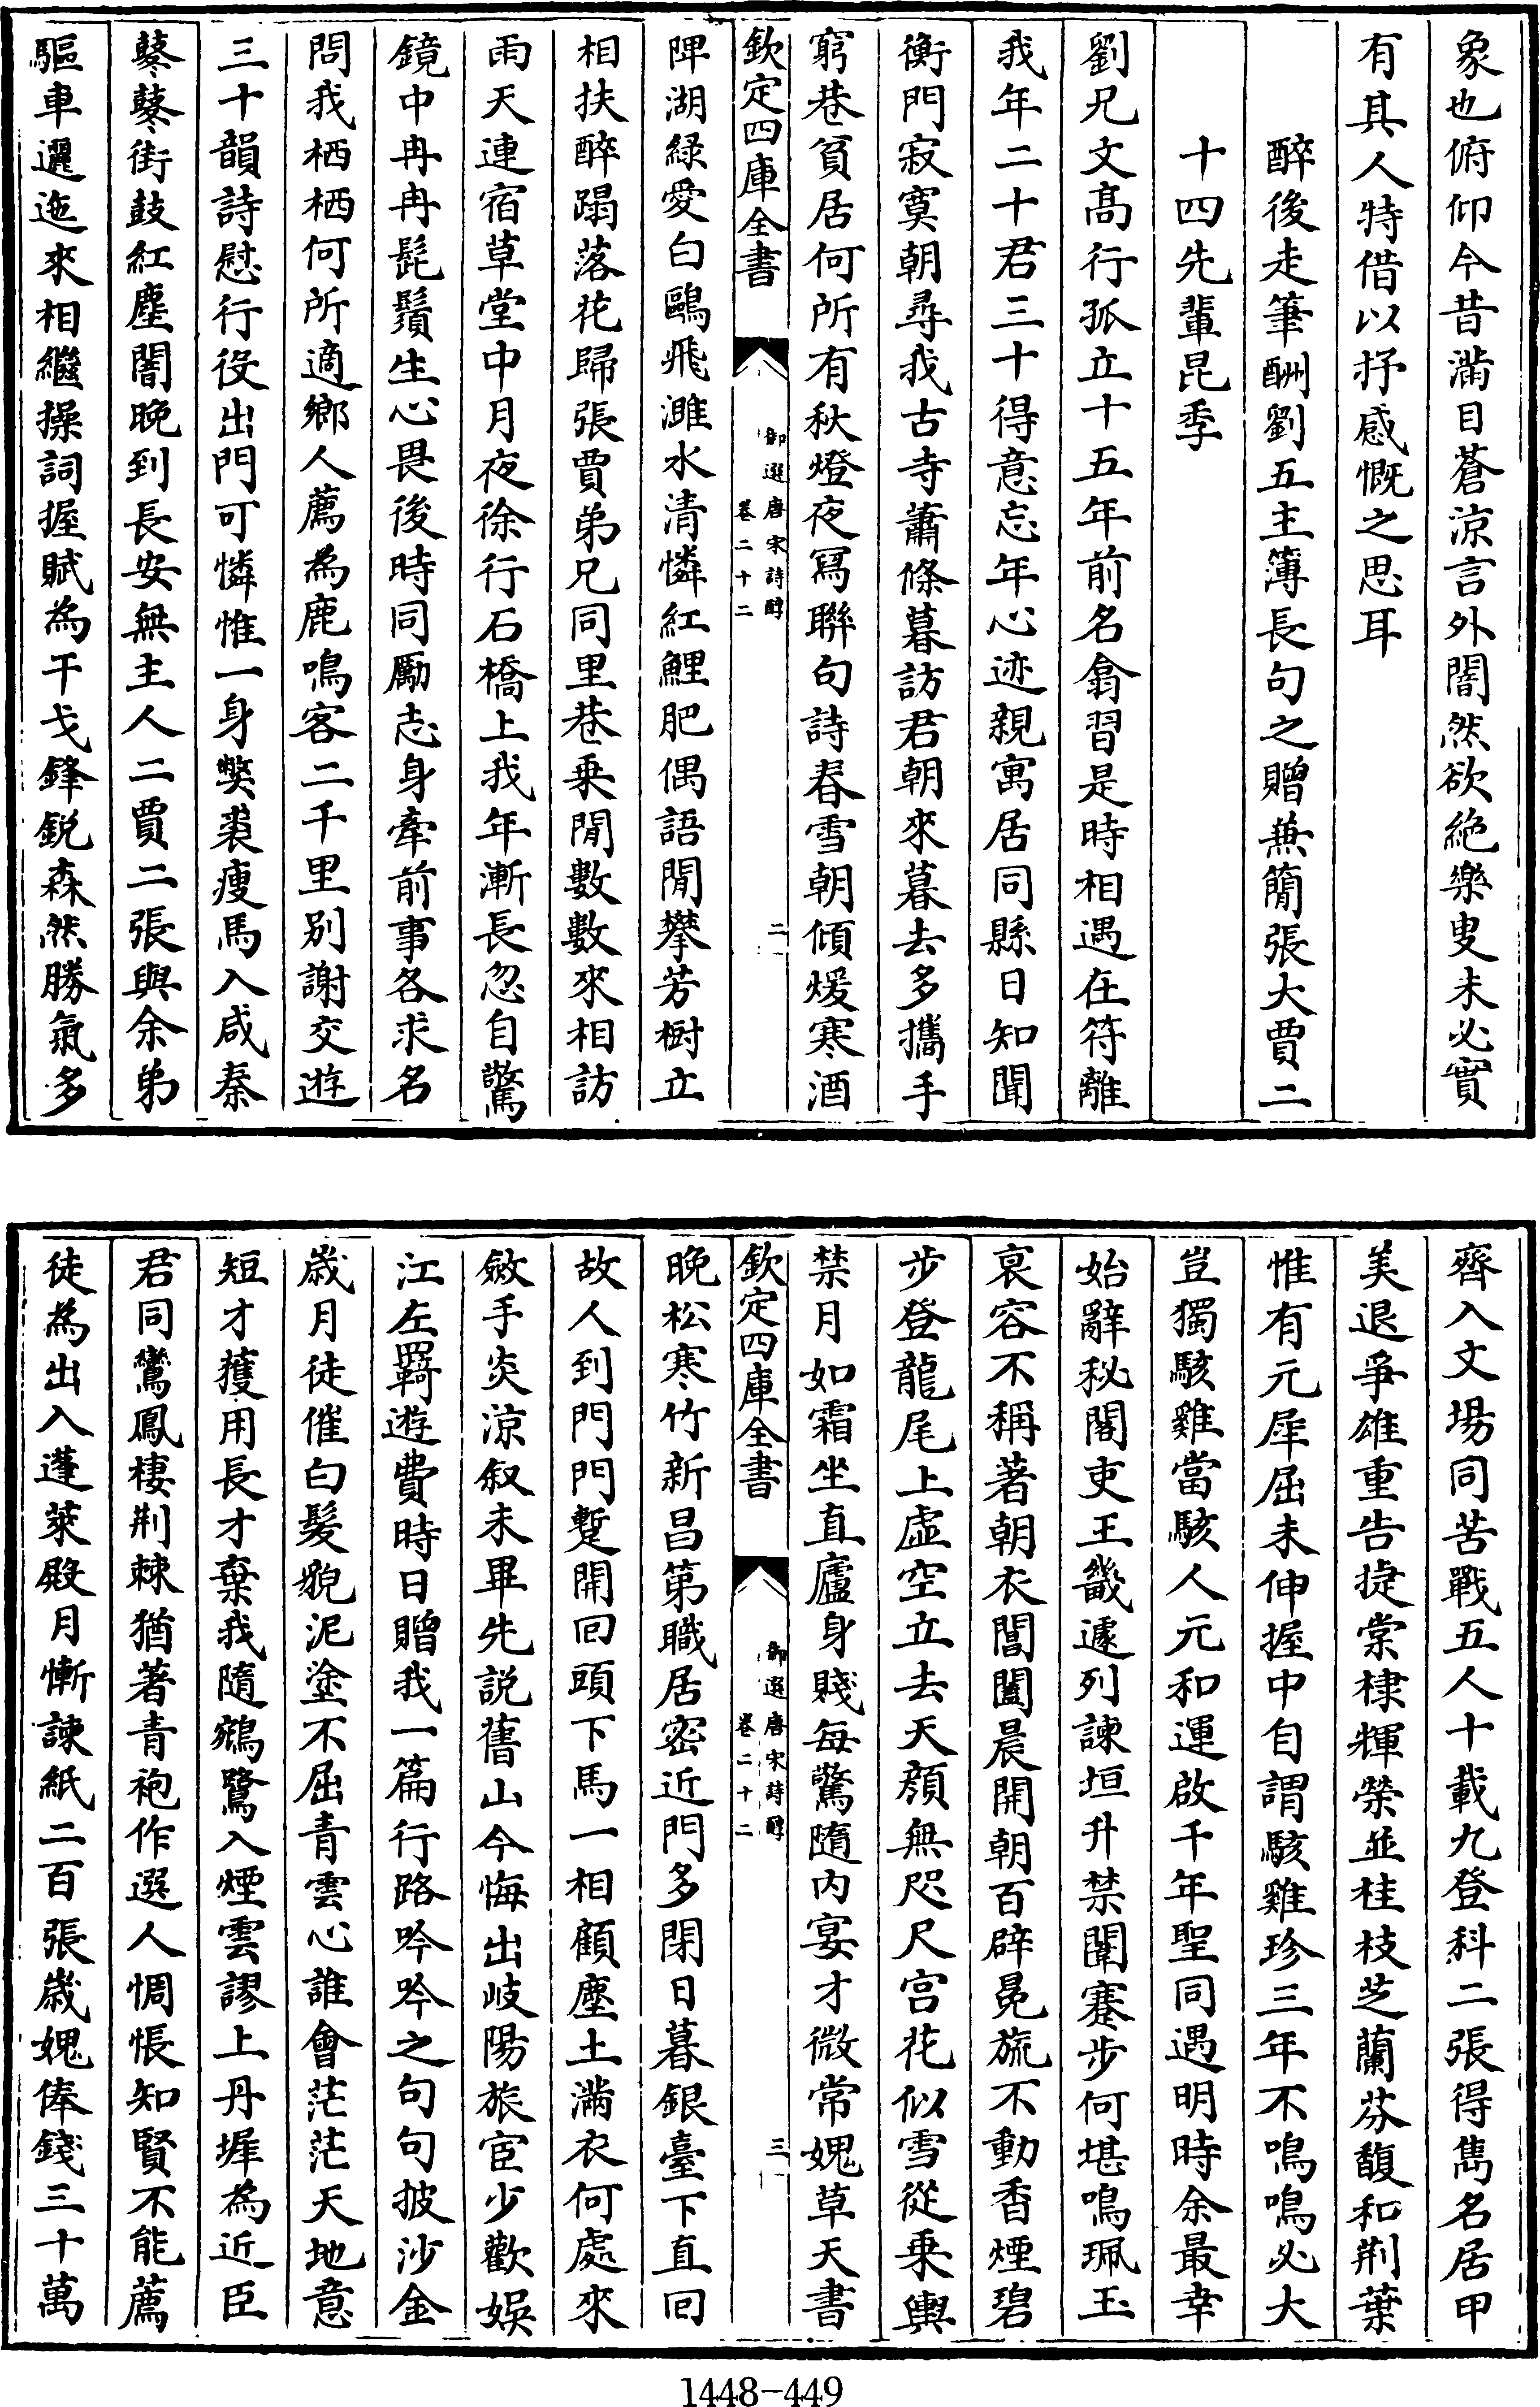 象也俯仰今昔滿目蒼涼言外闇然欲絶樂叟未必實
有其人特借以抒感慨之思耳
醉後走筆酬劉五主簿長句之贈兼簡張大賈二
十四先輩昆季
劉兄文髙行孤立十五年前名翕習是時相遇在符離
我年二十君三十得意忘年心迹親寓居同縣日知聞
衡門寂寞朝尋我古寺蕭條暮訪君朝來暮去多攜手
窮巷貧居何所有秋燈夜寫聯句詩春雪朝傾煖寒酒
欽定四庫全書
御選唐宋詩醇
卷二十二
二
陴湖綠愛白鷗飛濉水清憐紅鯉肥偶語閒攀芳樹立
相扶醉蹋落花歸張賈弟兄同里巷乗閒數數來相訪
雨天連宿草堂中月夜徐行石橋上我年漸長忽自驚
鏡中冉冉髭鬚生心畏後時同勵志身牽前事各求名
問我栖栖何所適鄉人薦為鹿鳴客二千里别謝交遊
三十韻詩慰行役出門可憐惟一身弊裘瘦馬入咸秦
鼕鼕街鼓紅塵闇晩到長安無主人二賈二張與余弟
驅車邐迤來相繼操詞握賦為干戈鋒鋭森然勝氣多
齊入文場同苦戰五人十載九登科二張得雋名居甲
美退爭雄重告捷棠棣輝榮並桂枝芝蘭芬馥和荆葉
惟有元犀屈未伸握中自謂駭雞珍三年不鳴鳴必大
豈獨駭雞當駭人元和運啟千年聖同遇明時余最幸
始辭秘閣吏王畿遽列諫垣升禁闈蹇步何堪鳴珮玉
衰容不稱著朝衣閶闔晨開朝百辟冕旒不動香煙碧
步登龍尾上虛空立去天顔無咫尺宫花似雪從乗輿
禁月如霜坐直廬身賤每驚隨内宴才微常媿草天書
欽定四庫全書
御選唐宋詩醇
卷二十二
三
晩松寒竹新昌第職居密近門多閉日暮銀臺下直回
故人到門門蹔開回頭下馬一相顧塵土滿衣何處來
斂手炎涼叙未畢先説舊山今悔出岐陽旅宦少歡娱
江左羇遊費時日贈我一篇行路吟吟之句句披沙金
歳月徒催白髮貌泥塗不屈青雲心誰會茫茫天地意
短才獲用長才棄我隨鵷鷺入煙雲謬上丹墀為近臣
君同鸞鳳棲荆棘猶著青袍作選人惆悵知賢不能薦
徒為出入蓬萊殿月慚諫紙二百張歳媿俸錢三十萬
1448-449